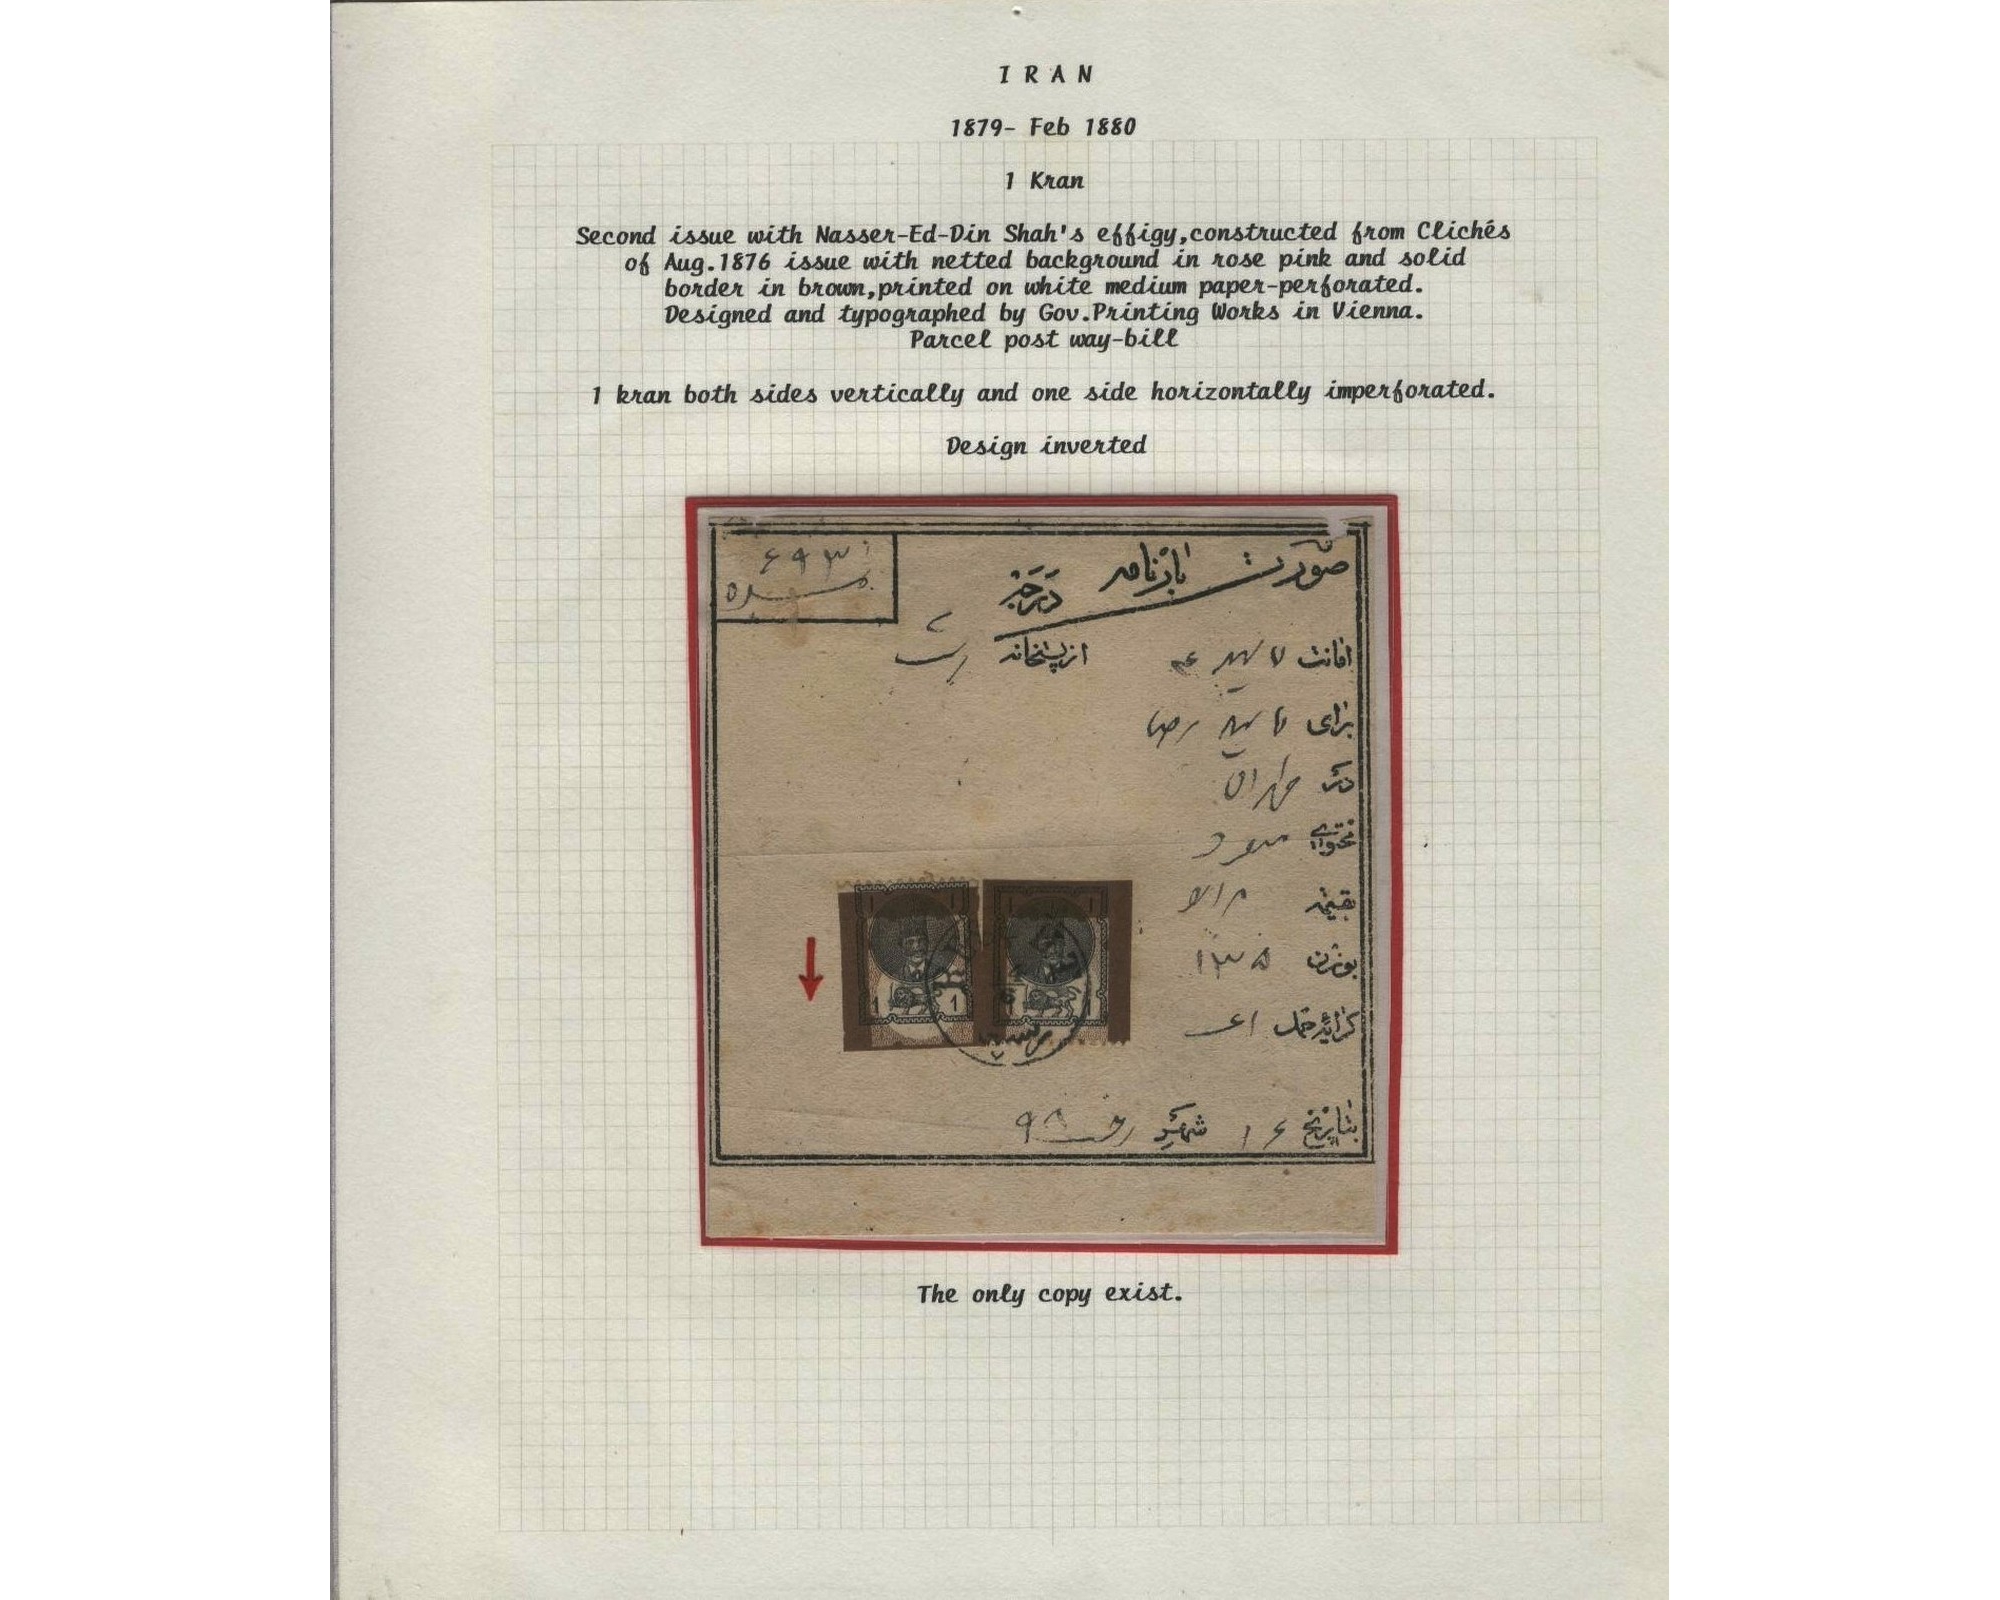 IRAN
1879- Feb 1880
1 Kran
Second issue with Nasser-Ed-Din Shah's effigy,constructed from Clichés
of Aug.1876 issue with netted background in rose pink and solid
border in brown,printed on white medium paper-perforated.
Designed and typographed by Gov.Printing Works in Vienna.
Parcel post way-bill
1 kran both sides vertically and one side horizontally imperforated.
Design inverted
صورت بارنامه
۶۹۳
نمره
امانت از پستخانه رشت
برای رضا
در طهران
محتوای
بقیمة
بوزن ۱۳۵
کرایه حمل
1 1
بتاریخ ۱۶ شهر رجب ۹۸
The only copy exist.